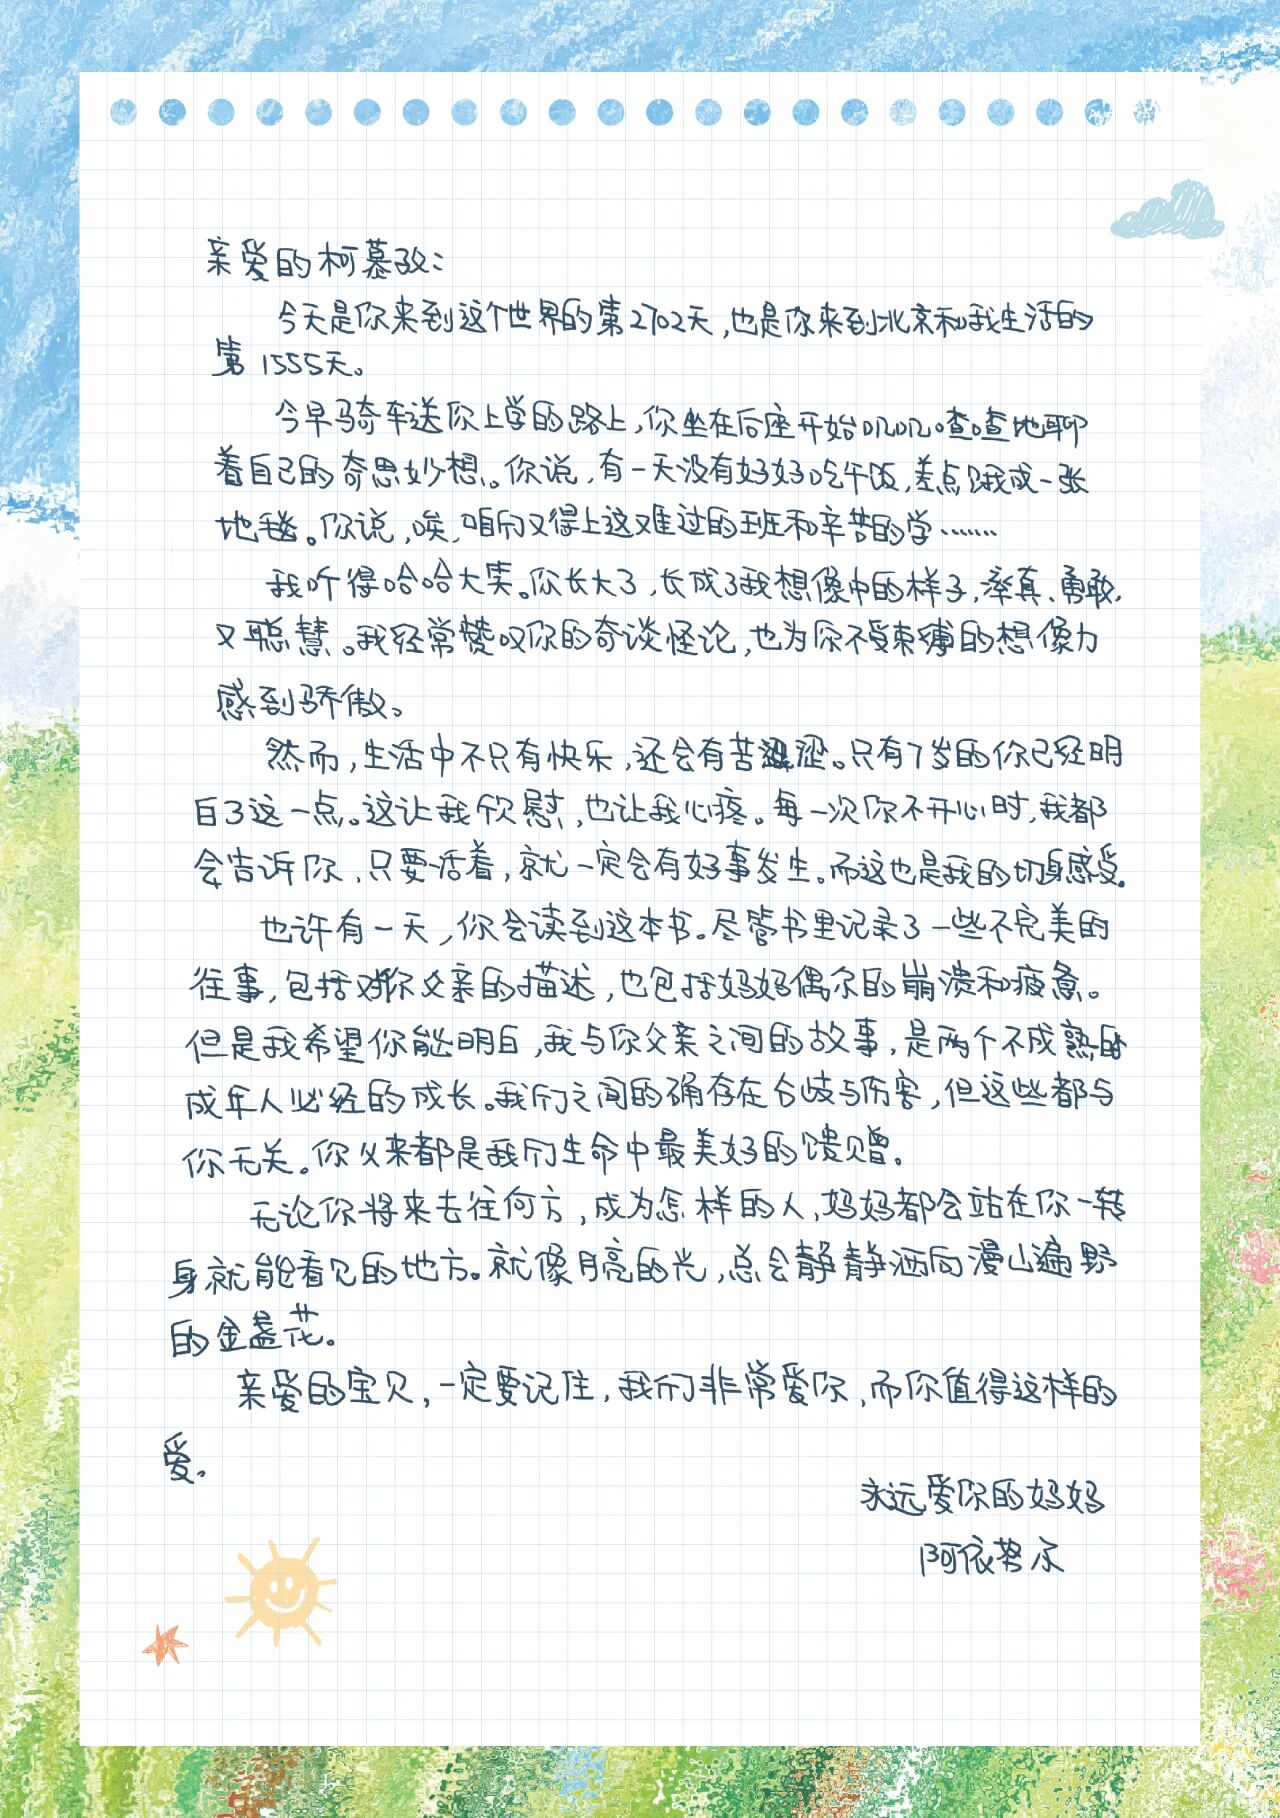 亲爱的柯慕孜：
今天是你来到这个世界的第2702天，也是你来到北京和我生活的
第1555天。
今早骑车送你上学的路上，你坐在后座开始叽叽喳喳地聊
着自己的奇思妙想。你说，有一天没有好好吃午饭，差点饿成一张
地毯。你说，唉，咱们又得上这难过的班和辛苦的学……
我听得哈哈大笑。你长大了，长成了我想像中的样子，率真、勇敢，
又聪慧。我经常赞叹你的奇谈怪论，也为你不受束缚的想像力
感到骄傲。
然而，生活中不只有快乐，还会有苦涩。只有7岁的你已经明
白了这一点。这让我欣慰，也让我心疼。每一次你不开心时，我都
会告诉你，只要活着，就一定会有好事发生。而这也是我的切身感受。
也许有一天，你会读到这本书。尽管书里记录了一些不完美的
往事，包括对你父亲的描述，也包括妈妈偶尔的崩溃和疲惫。
但是我希望你能明白，我与你父亲之间的故事，是两个不成熟的
成年人必经的成长。我们之间的确存在分歧与伤害，但这些都与
你无关。你从来都是我们生命中最美好的馈赠。
无论你将来去往何方，成为怎样的人，妈妈都会站在你一转
身就能看见的地方。就像月亮的光，总会静静洒向漫山遍野
的金盏花。
亲爱的宝贝，一定要记住，我们非常爱你，而你值得这样的
爱。
永远爱你的妈妈
阿依努尔